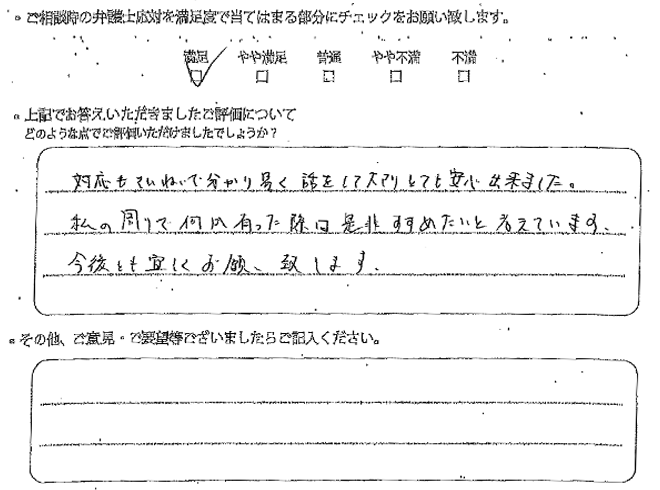 ご相談時の弁護士応対を満足度で当てはまる部分にチェックをお願い致します。
満足 やや満足 普通 やや不満 不満
上記でお答えいただきましたご評価について
どのような点でご評価いただけましたでしょうか？
対応もていねいで分かり易く話をして下さりとても安心出来ました。
私の周りで何か有った際は是非すすめたいと考えています。
今後とも宜しくお願い致します。
その他、ご意見・ご要望等ございましたらご記入ください。